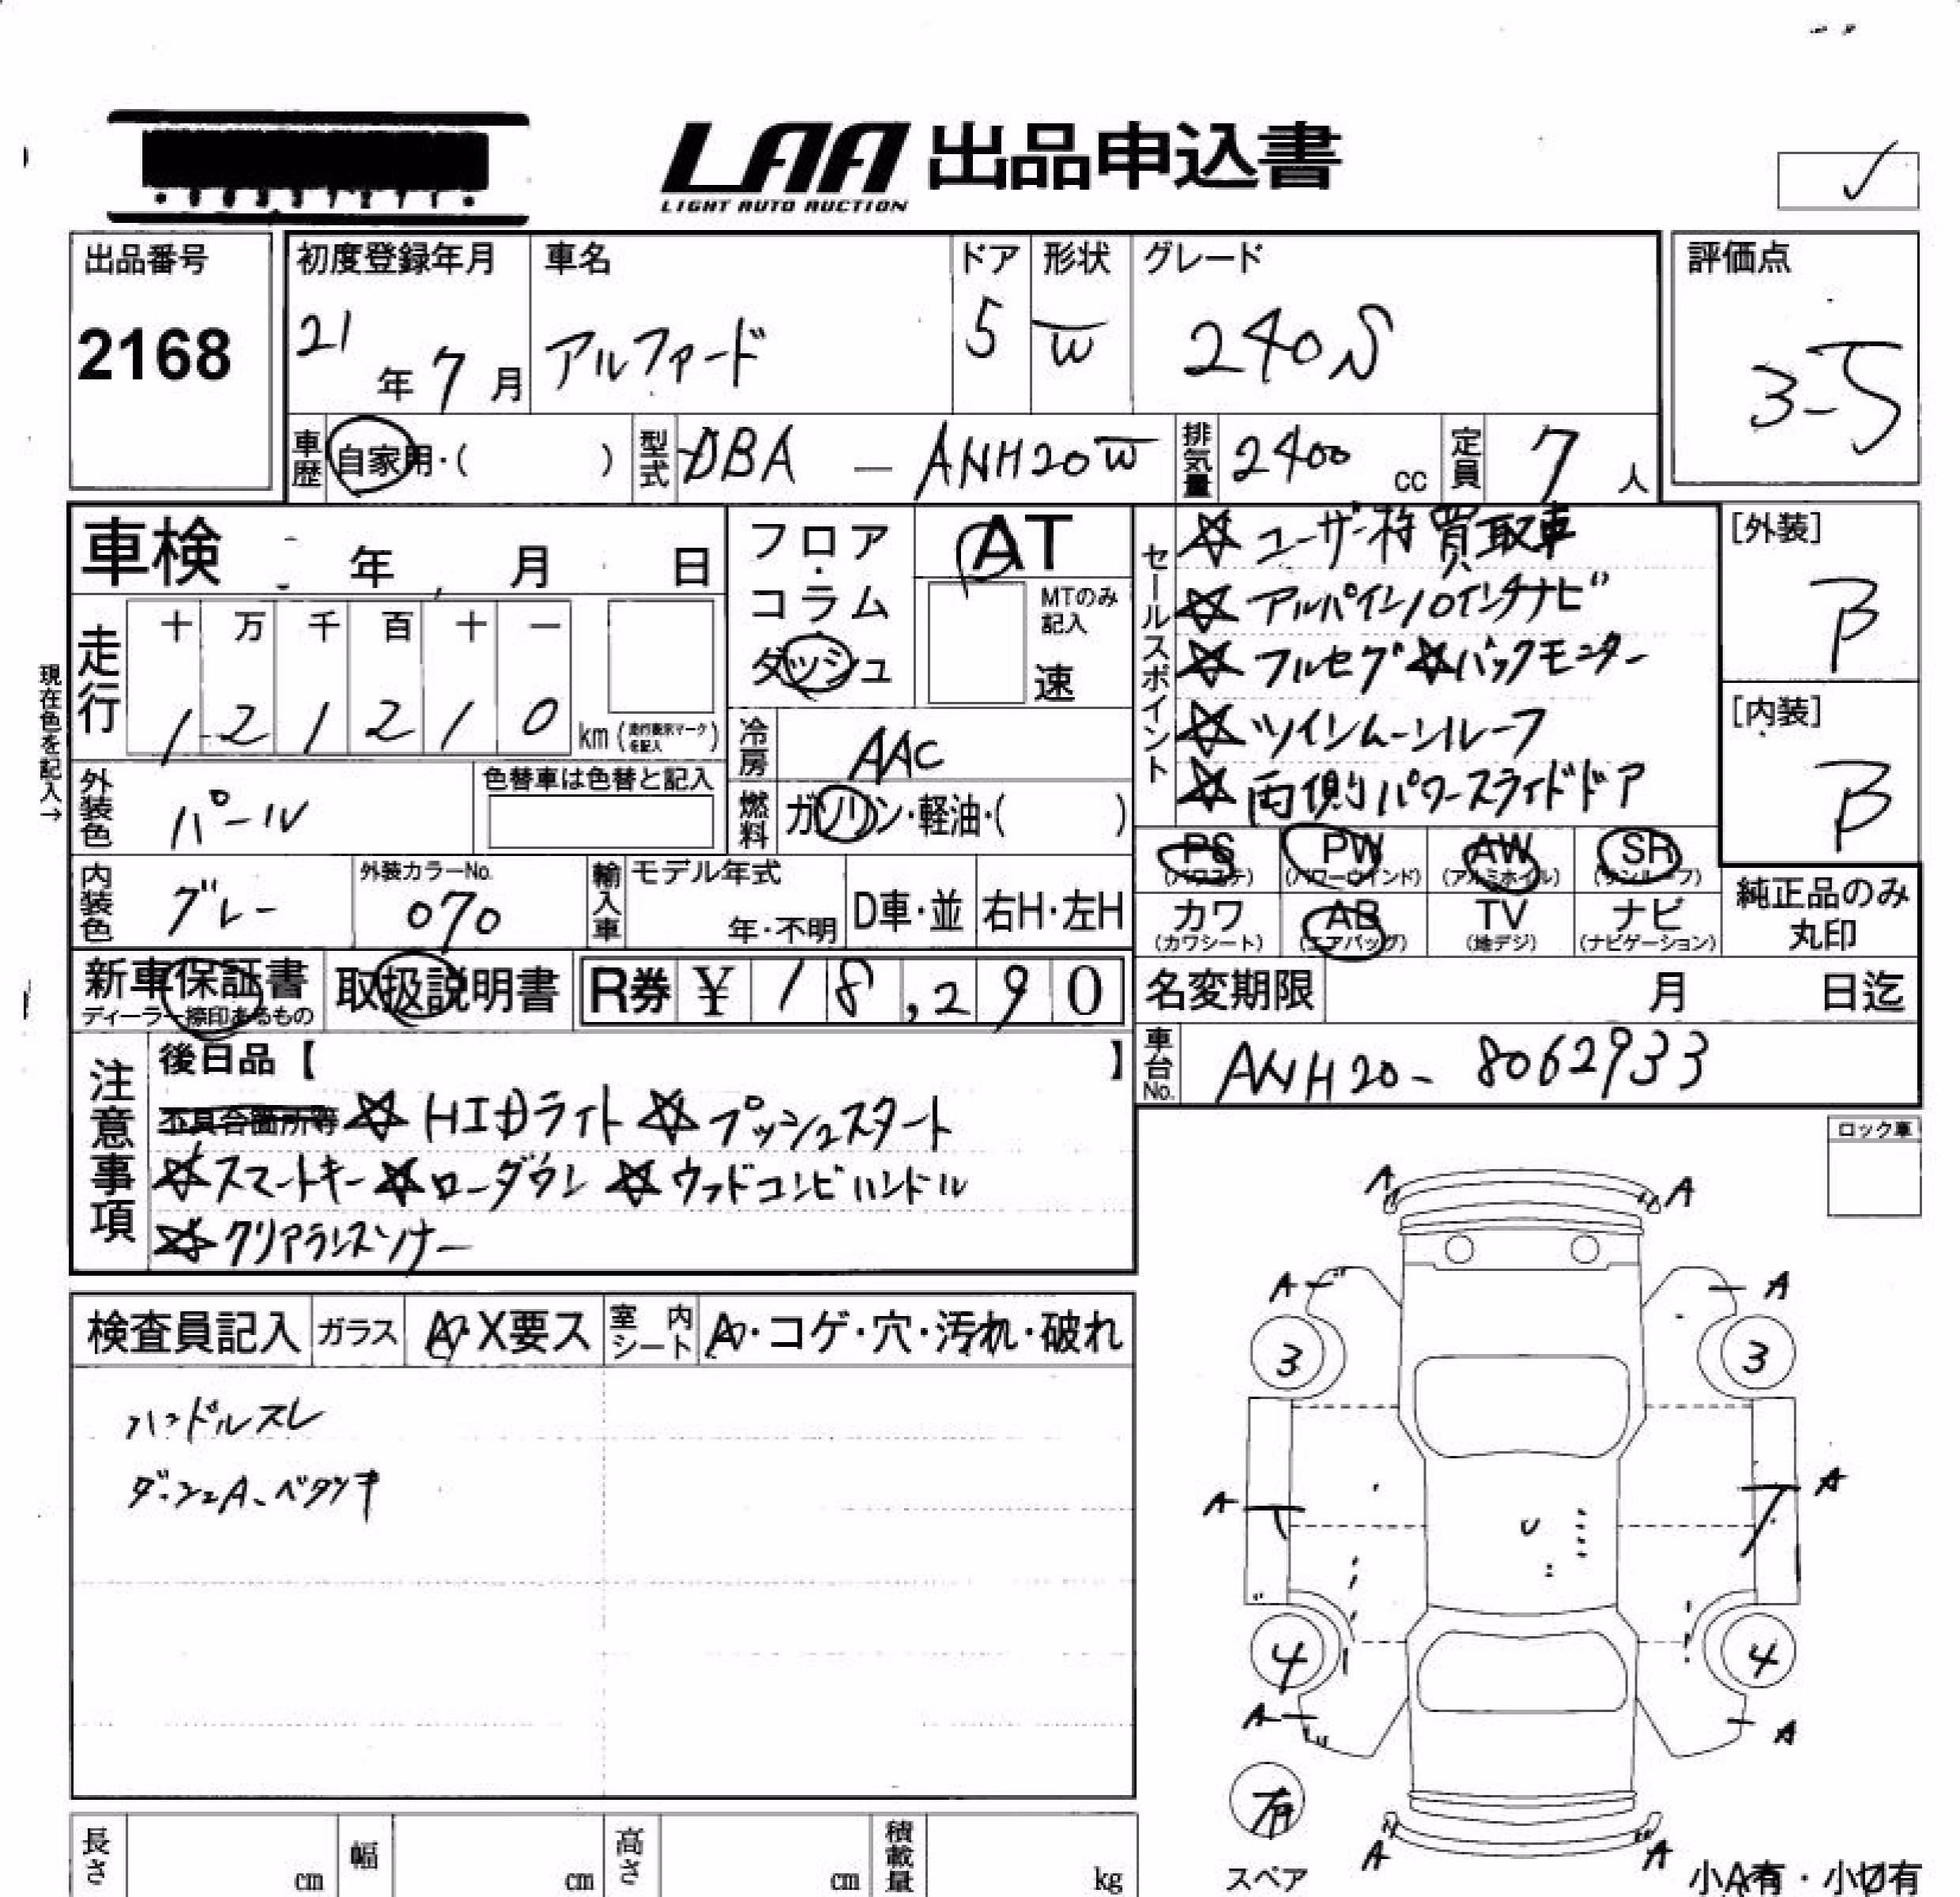 LAA 出品申込書
LIGHT AUTO AUCTION
出品番号
2168
初度登録年月
21年7月
車名
アルファード
ドア
5
形状
W
グレード
240S
評価点
3-5
車歴 自家用・( )
型式 DBA - ANH20W
排気量 2400 cc
定員 7 人
車検 年 月 日
フロア
コラム
ダッシュ
AT
MTのみ記入
速
セールスポイント
☆ユーザー様買取車
☆アルパイン10インチナビ
☆フルセグ ☆バックモニター
☆ツインムーンルーフ
☆両側パワースライドドア
[外装]
B
[内装]
B
現在色を記入→
走行
十 万 千 百 十 一
1 2 1 2 1 0 km (走行表示マークを記入)
冷房 AAC
燃料 ガソリン・軽油・( )
外装色 パール
色替車は色替と記入
内装色 グレー
外装カラーNo.
070
輸入車 モデル年式
年・不明
D車・並 右H・左H
PS (パワステ) PW (パワーウインド) AW (アルミホイル) SR (サンルーフ)
カワ (カワシート) AB (エアバッグ) TV (地デジ) ナビ (ナビゲーション)
純正品のみ
丸印
新車保証書
ディーラー捺印あるもの
取扱説明書
R券 ¥ 18,290
名変期限 月 日迄
車台No. ANH20-8062933
注意事項
後日品【 】
不具合箇所等 ☆HIDライト ☆プッシュスタート
☆スマートキー ☆ローダウン ☆ウッドコンビハンドル
☆クリアランスソナー
ロック車
検査員記入 ガラス A・X要ス 室内シート A・コゲ・穴・汚れ・破れ
ハンドルスレ
ダッシュA、ベタツキ
A A
A A
3 3
A A
4 4
A A
有
スペア
A A
小A有・小U有
長さ cm 幅 cm 高さ cm 積載量 kg